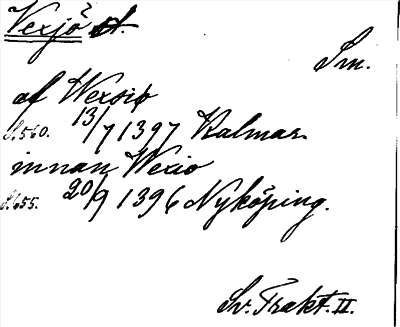 Vexjö st.
Sm.
af Wexsiö
S. 560. 13/7 1397 Kalmar
innan Wexio
S. 655. 20/9 1396 Nyköping.
Sv. Trakt. II.